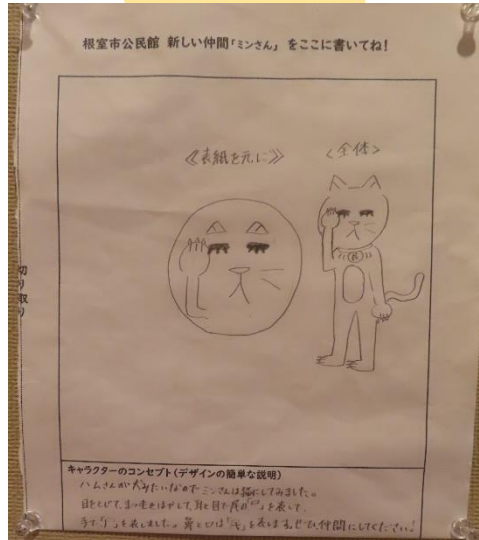 根室市公民館 新しい仲間「ミンさん」をここに書いてね!
《表紙を元に》
<全体>
民
切り取り
キャラクターのコンセプト(デザインの簡単な説明)
ハムさんが犬みたいなのでミンさんは猫にしてみました。
目をとじて、まつ毛をはやして、耳と目で民の「口」を表して、
手で「」を表しました。鼻とひげは「モ」を表します。ぜひ仲間にしてください!